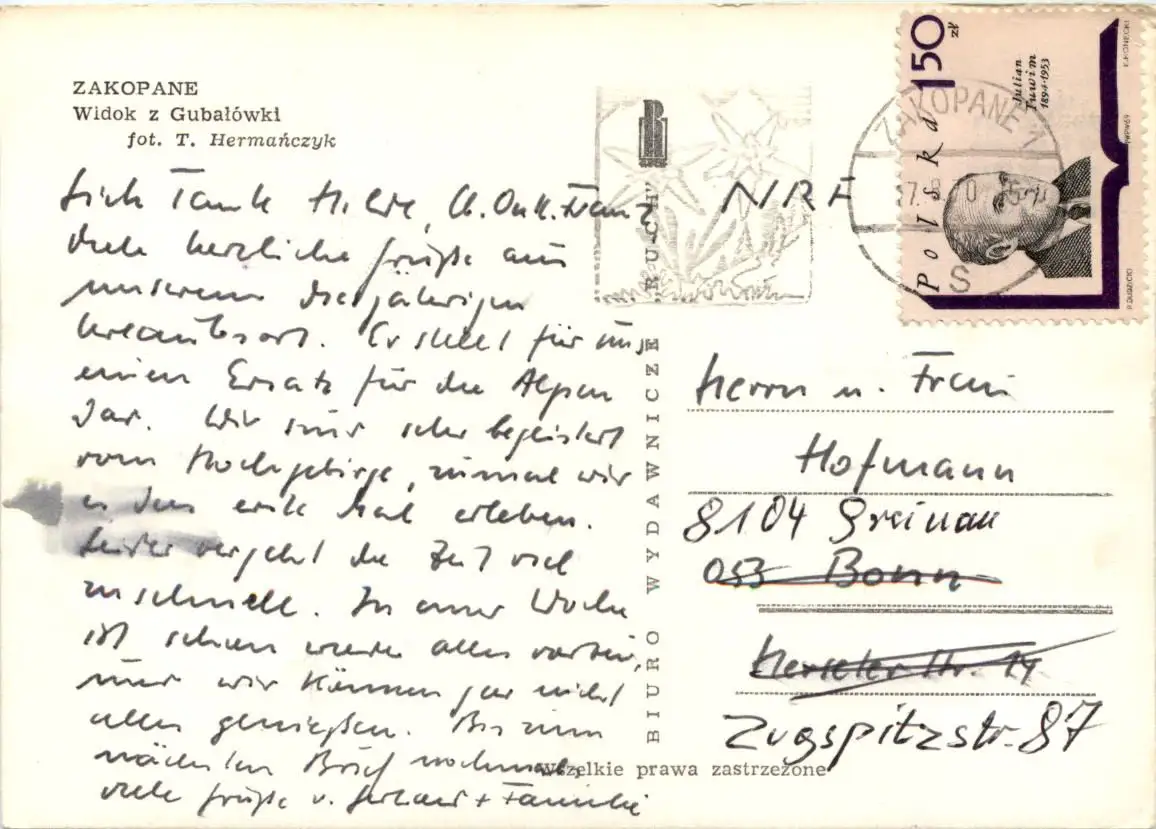 ZAKOPANE
Widok z Gubałówki
fot. T. Hermańczyk
Tante Hilde, u. Onk. Franz
viele herzliche Grüße aus
unserem diesjährigen
Urlaubsort. Er stellt für uns
einen Ersatz für die Alpen
dar. Wir sind sehr begeistert
vom Hochgebirge, zumal wir
es das erste Mal erleben.
Leider vergeht die Zeit viel
zu schnell. In einer Woche
ist schon wieder alles vorbei,
und wir können gar nicht
alles genießen. Bis zum
nächsten Brief nochmals
viele Grüße v. + Familie
RUCH
NRF
ZAKOPANE 1
S
1,50 zł
Polska
Julian
Tuwim
1894-1953
PWPW 69
Herrn u. Frau
Hofmann
8104 Grainau
053 Bonn
Herseler Str. 14
Zugspitzstr. 87
BIURO WYDAWNICZE „RUCH”
Wszelkie prawa zastrzeżone